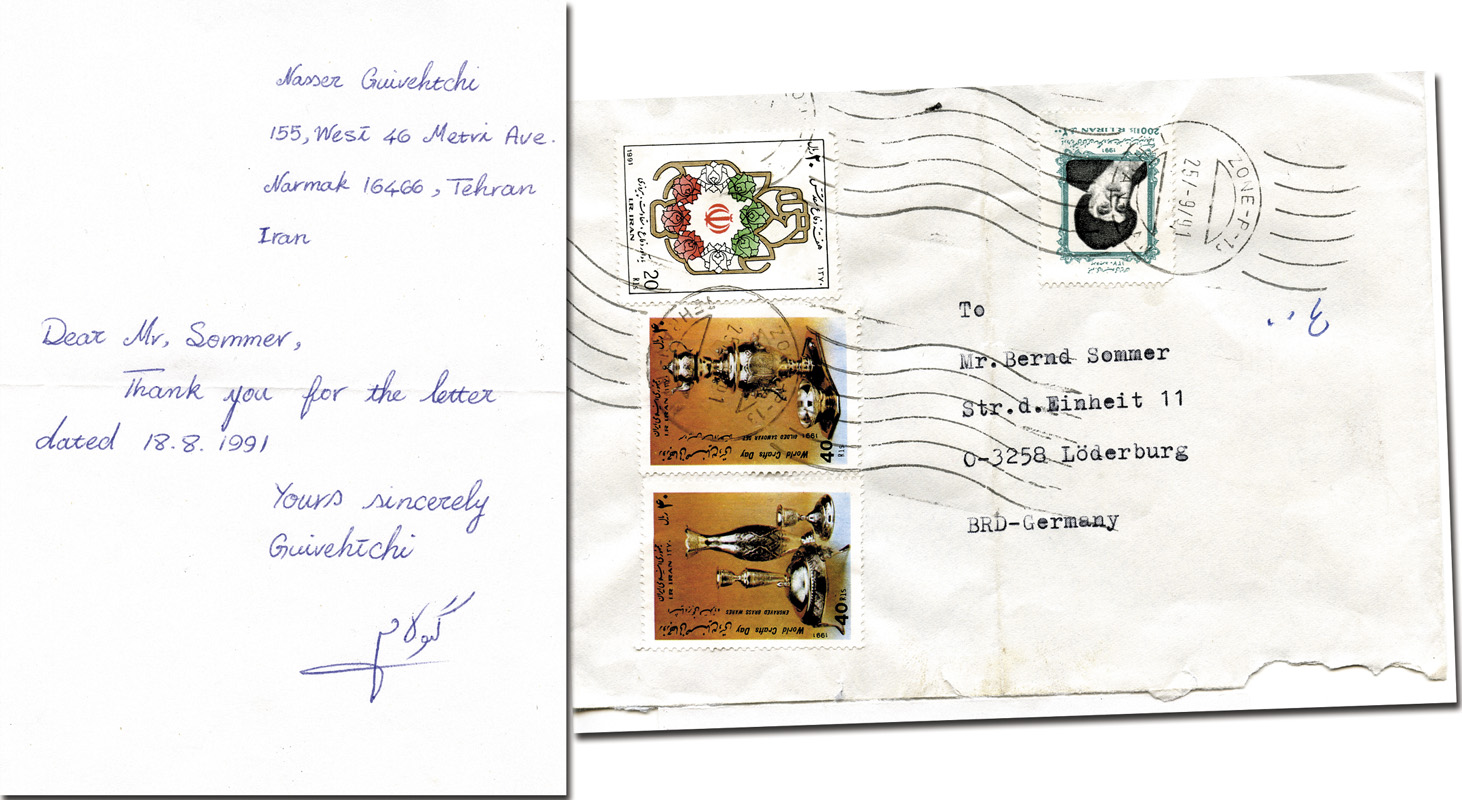 Nasser Guivehtchi
155, West 46 Metri Ave.
Narmak 16466, Tehran
Iran
Dear Mr, Sommer,
Thank you for the letter
dated 18.8.1991
Yours sincerely
Guivehtchi
1991
۲۰ ریال
I.R.IRAN
۱۳۷۰
20 RLS
۴۰ ریال
I.R.IRAN
GILDED SAMOVAR SET
World Crafts Day
1991
40 RLS
۴۰ ریال
I.R.IRAN ۱۳۷۰
ENGRAVED BRASS WARES
World Crafts Day
1991
40 RLS
200 RLS R.I.IRAN
1991
ZONE-P-13
25/-9/91
To
Mr.Bernd Sommer
Str.d.Einheit 11
O-3258 Löderburg
BRD-Germany